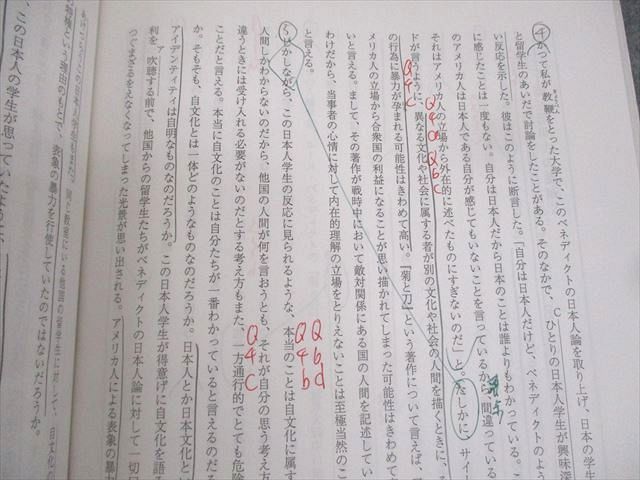 ④かつて私が教鞭をとった大学で、このベネディクトの日本人論を取り上げ、日本の学生
と留学生のあいだで討論をしたことがある。そのなかで、Cひとりの日本人学生が興味深
い反応を示した。彼はこのように断言した。「自分は日本人だけど、ベネディクトのよう
に感じたことは一度もない。自分は日本人だから日本のことは誰よりもわかっている。こ
のアメリカ人は日本人である自分が感じてもいないことを言っているから間違っている
それはアメリカ人の立場から外在的に述べたものにすぎないのだ」と。たしかに、サイー
ドが言うように、異なる文化や社会に属する者が別の文化や社会の人間を描くときに、そ
の行為に暴力が孕まれる可能性はきわめて高い。『菊と刀』という著作について言えば、ア
メリカ人の立場から合衆国の利益になることが思い描かれてしまった可能性はきわめて
いと言える。まして、その著作が戦時中において敵対関係にある国の人間を記述してい
わけだから、当事者の心情に対して内在的理解の立場をとりえないことは至極当然のこ
と言える。
⑤しかしながら、この日本人学生の反応に見られるような、本当のことは自文化に属す
人間しかわからないのだから、他国の人間が何を言おうとも、それが自分の思う考え方
違うときには受け入れる必要がないのだとする考え方もまた、一方通行的でとても危険
ことだと言える。本当に自文化のことは自分たちが一番わかっていると言えるのだろ
か。そもそも、自文化とは一体どのようなものなのだろうか。日本人とか日本文化とい
アイデンティティは自明なものなのだろうか。この日本人学生が得意げに自文化を語
利を吹聴する前で、他国からの留学生たちがベネディクトの日本人論に対して一切口
つぐまざるをえなくなってしまった光景が思い出される。アメリカ人による表象の暴力
同じ教室にいる他国の留学生に対して、自文化の
という理由のもとで、表象の暴力を行使していたのではないだろうか。
、この日本人の学生が思っていたように、
Q4a
Q6c
Q4c
Q6d
Q4b
Q4c